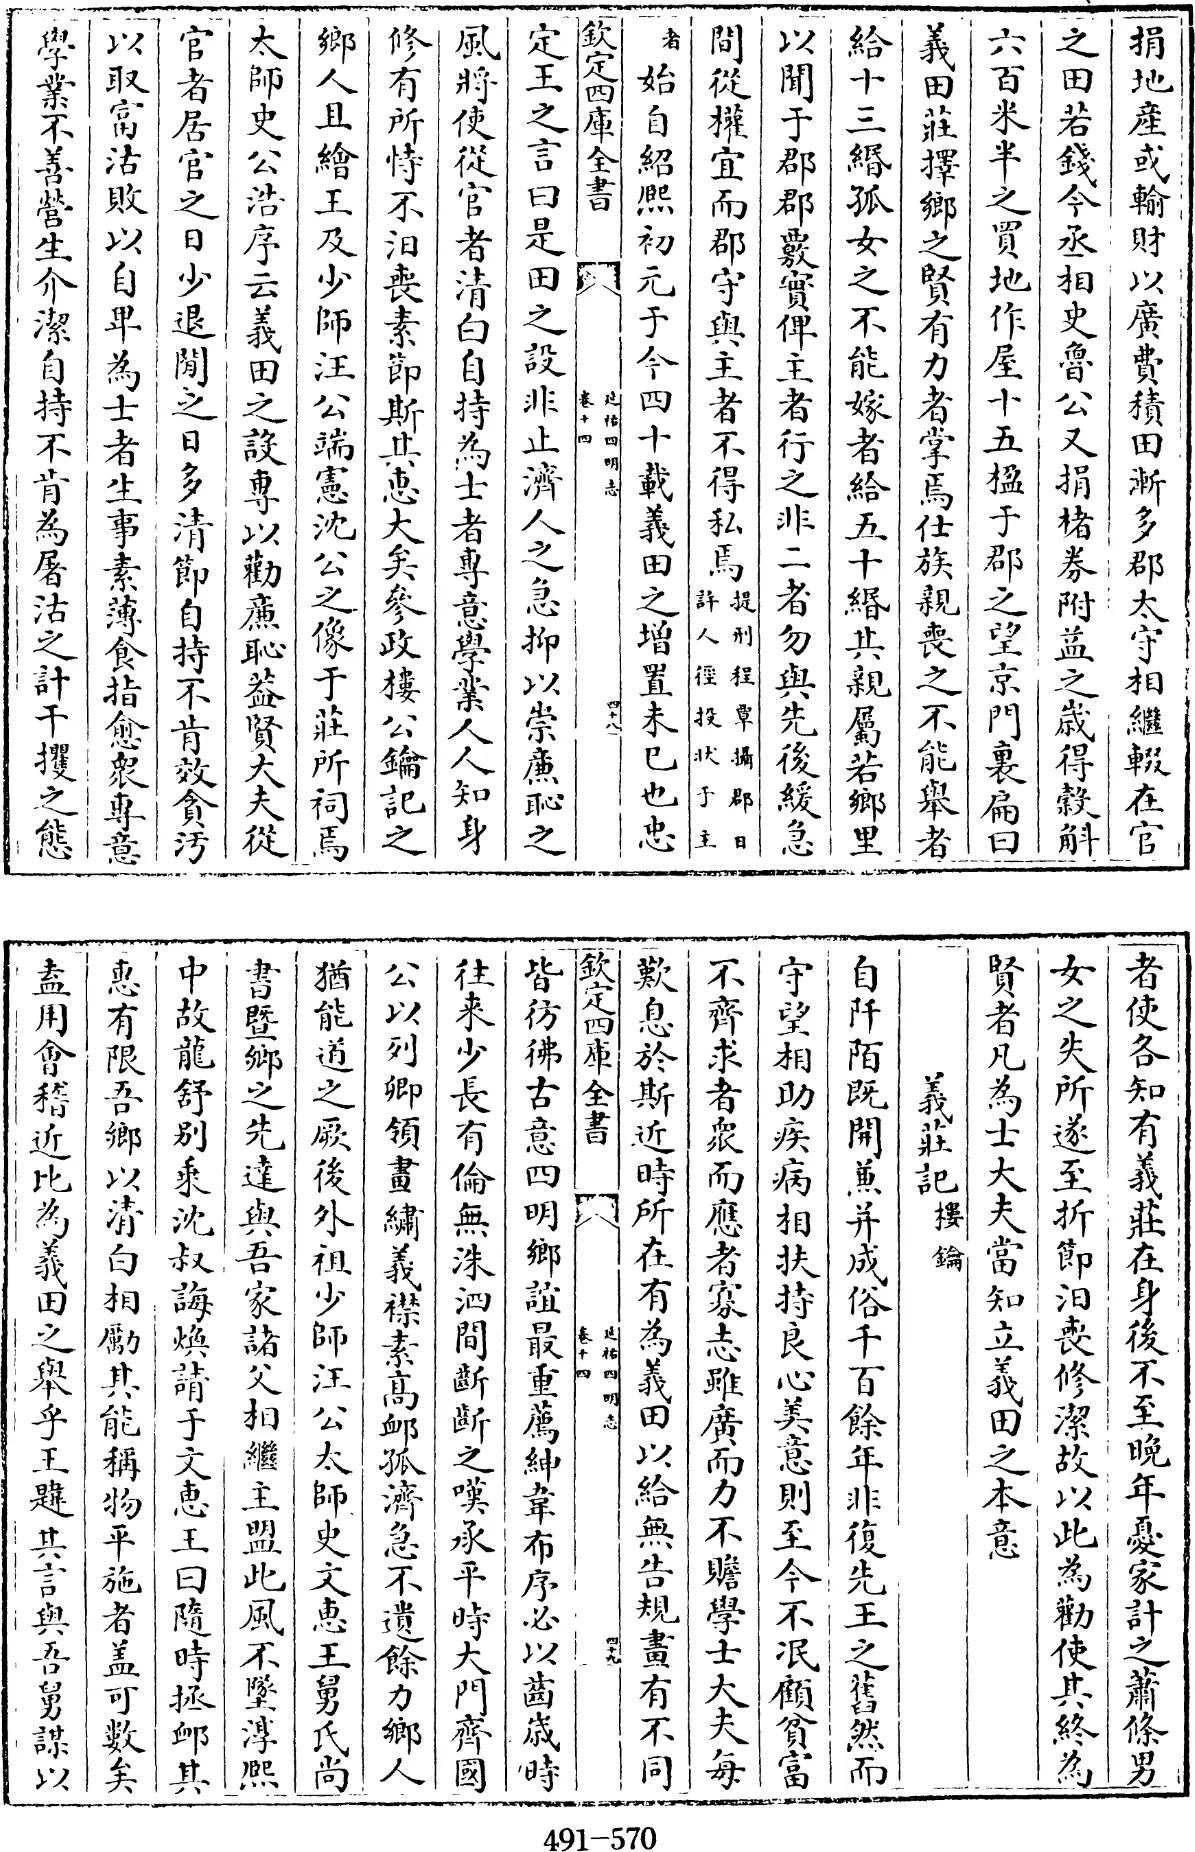 捐地產或輸財以廣費積田漸多郡太守相繼輟在官
之田若錢今丞相史魯公又捐楮券附益之歲得穀斛
六百米半之買地作屋十五楹于郡之望京門裏扁曰
義田莊擇鄉之賢有力者掌焉仕族親喪之不能舉者
給十三緡孤女之不能嫁者給五十緡其親屬若鄉里
以聞于郡郡覈實俾主者行之非二者勿與先後緩急
間從權宜而郡守與主者不得私焉提刑程覃攝郡日許人徑投狀于主
者始自紹熙初元于今四十載義田之增置未已也忠
欽定四庫全書 延祐四明志 卷十四 四十八
定王之言曰是田之設非止濟人之急抑以崇廉恥之
風將使從官者清白自持為士者專意學業人人知身
修有所恃不汨喪素節斯其恵大矣參政樓公鑰記之
鄉人且繪王及少師汪公端憲沈公之像于莊所祠焉
太師史公浩序云義田之設專以勸廉恥葢賢大夫從
官者居官之日少退閒之日多清節自持不肯效貪汚
以取富沽敗以自卑為士者生事素薄食指愈衆專意
學業不善營生介潔自持不肯為屠沽之計干攫之態
者使各知有義莊在身後不至晚年憂家計之蕭條男
女之失所遂至折節汨喪修潔故以此為勸使其終為
賢者凡為士大夫當知立義田之本意
義莊記 樓鑰
自阡陌既開兼并成俗千百餘年非復先王之舊然而
守望相助疾病相扶持良心美意則至今不泯顧貧富
不齊求者衆而應者寡志雖廣而力不贍學士大夫每
歎息於斯近時所在有為義田以給無告規畫有不同
欽定四庫全書 延祐四明志 卷十四 四十九
皆彷彿古意四明鄉誼最重薦紳韋布序必以齒歲時
往来少長有倫無洙泗間齗齗之嘆承平時大門齊國
公以列卿領畫繡義襟素髙卹孤濟急不遺餘力鄉人
猶能道之厥後外祖少師汪公太師史文恵王舅氏尚
書暨鄉之先達與吾家諸父相繼主盟此風不墜淳熙
中故龍舒别乘沈叔誨煥請于文恵王曰隨時拯卹其
恵有限吾鄉以清白相勵其能稱物平施者盖可數矣
盍用會稽近比為義田之舉乎王韙其言與吾舅謀以
491-570